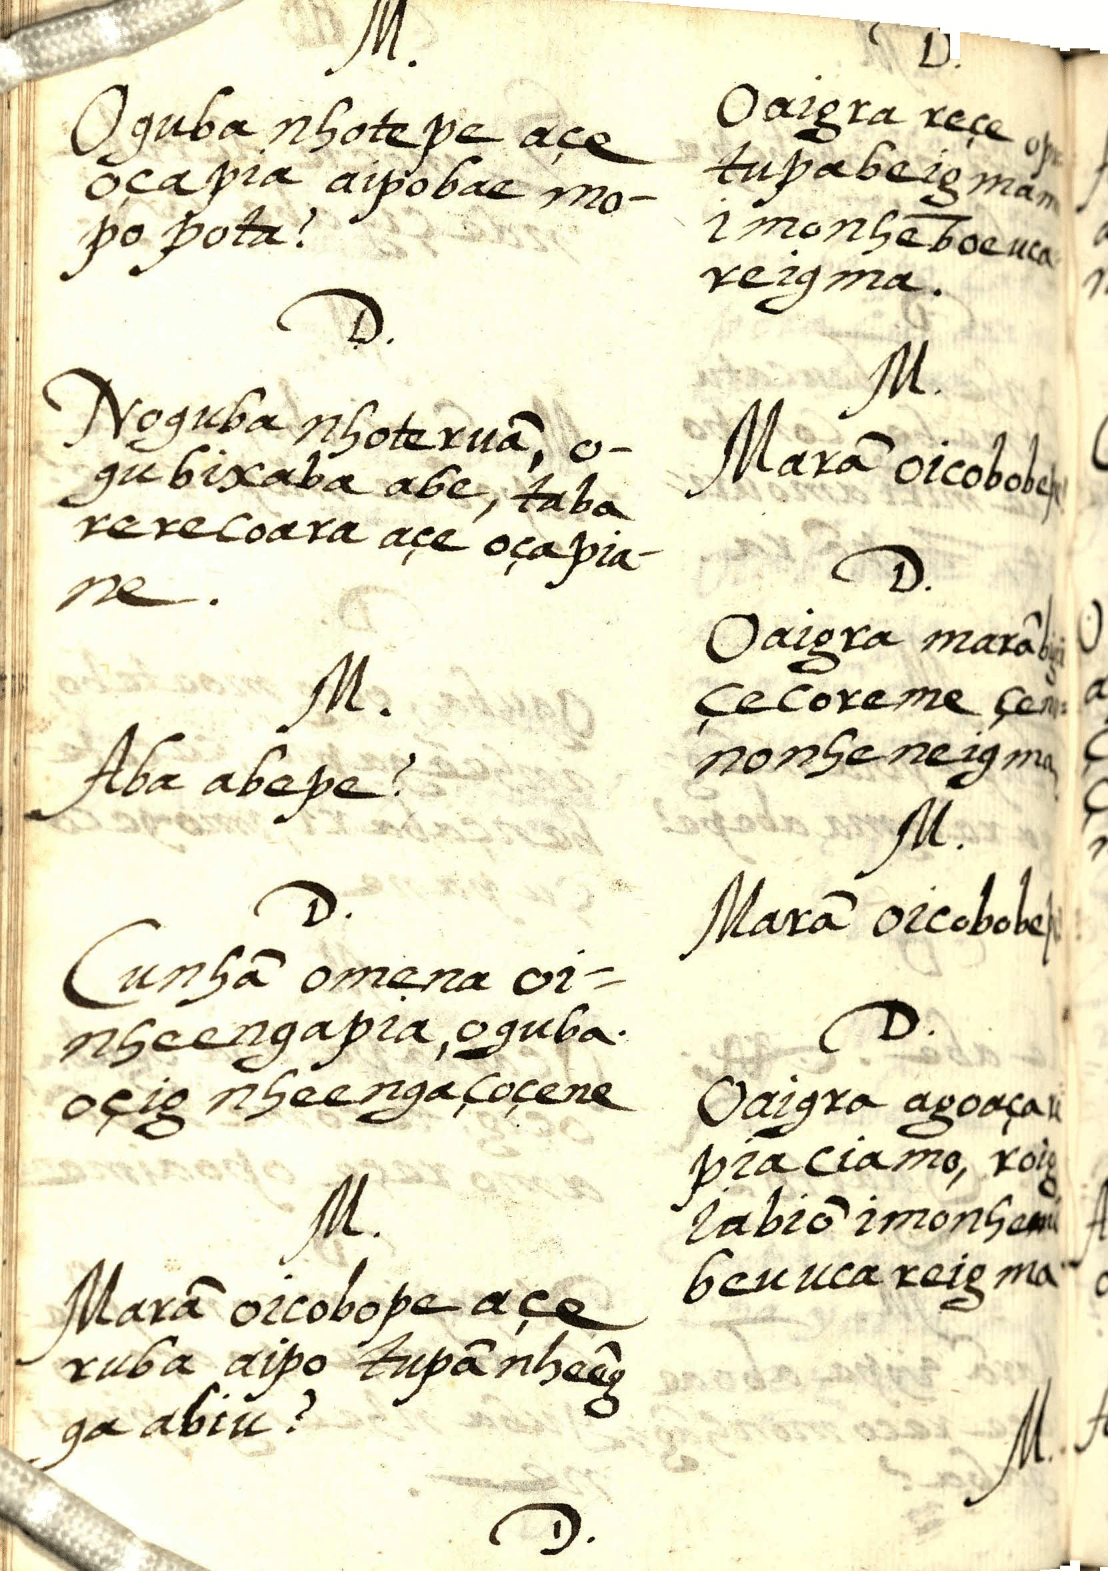 M.
Oguba nhotepe açe
oçapia aipobae mo-
po pota?
D.
Noguba nhoteruã, o-
gubixaba abe, taba
rerecoara açe oçapia-
ne.
M.
Aba abepe?
D.
Cunhã omena oi-
nheengapia, oguba.
oçig nheengaçoçene
M.
Marã oicobope açe
ruba aipo tupã nheẽg
ga abiu?
D.
D.
Oaigra reçe
tupabeigmam
imonhẽboeuca
reigma.
M.
Marã oicobobe
D.
Oaigra marã
çecoreme
nonheneigma,
M.
Marã oicobobe
D.
Oaigra
piaciamo, roig
iabiõ
beuucareigma
M.